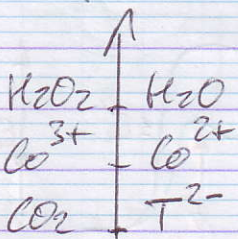 H2O2 H2O
Co3+ Co2+
CO2 T2-